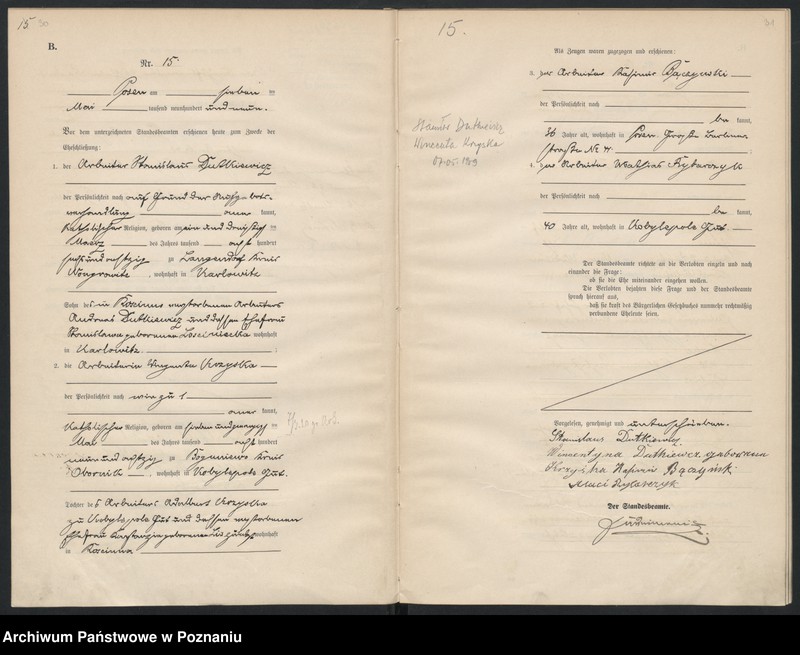 15
B.
Nr. 15.
Posen am sieben ten
Mai tausend neunhundert und neun.
Vor dem unterzeichneten Standesbeamten erschienen heute zum Zwecke der
Eheschließung:
1. der Arbeiter Stanislaus Dutkiewicz
der Persönlichkeit nach auf Grund der
verhandlung aner kannt,
katholischer Religion, geboren am ein und dreißig sten
März des Jahres tausend acht hundert
sechs und achtzig zu Langendorf Kreis
Wongrowitz, wohnhaft in Karlowitz
Sohn des in verstorbenen Arbeiters
Andreas Dutkiewicz und dessen Ehefrau
Stanislawa geborenen wohnhaft
in Karlowitz
2. die Arbeiterin Krzyska
der Persönlichkeit nach wie zu 1
aner kannt,
katholischer Religion, geboren am sieben und zwanzig sten
Mai des Jahres tausend acht hundert
neun und achtzig zu Boguniewo Kreis
Obornik, wohnhaft in Kobylepole Gut.
Tochter des Arbeiters Adalbert Krzyska
zu Kobylepole Gut und dessen verstorbenen
Ehefrau geborenen wohnhaft
in
15.
Dutkiewicz
07.05.1909
Als Zeugen waren zugezogen und erschienen:
3. der Arbeiter Kasimir Bączynski
der Persönlichkeit nach
be kannt,
36 Jahre alt, wohnhaft in Posen Große Berliner
straße No
4. der Arbeiter Mathias Rybarczyk
der Persönlichkeit nach
be kannt,
40 Jahre alt, wohnhaft in Kobylepole Gut
Der Standesbeamte richtete an die Verlobten einzeln und nach
einander die Frage:
ob sie die Ehe miteinander eingehen wollen.
Die Verlobten bejahten diese Frage und der Standesbeamte
sprach hierauf aus,
daß sie kraft des Bürgerlichen Gesetzbuchs nunmehr rechtmäßig
verbundene Eheleute seien.
Vorgelesen, genehmigt und unterschrieben.
Stanislaus Dutkiewicz
Wincentyna Dutkiewicz geborene
Krzyska
Maci Rybarczyk
Der Standesbeamte.
Archiwum Państwowe w Poznaniu